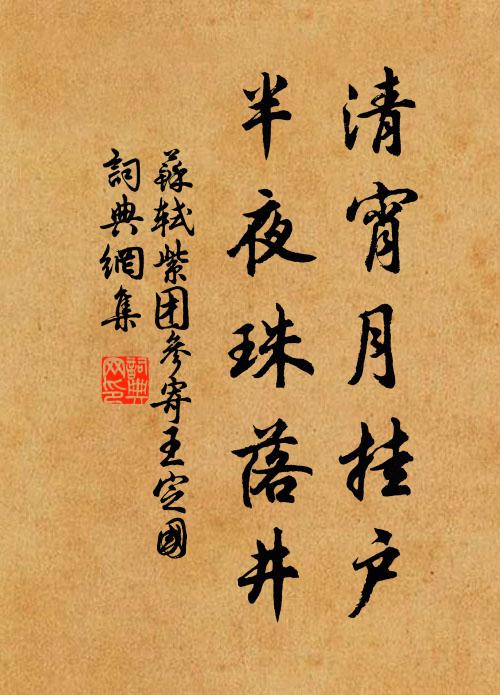 清宵月挂户
半夜珠落井
蘇軾紫团參寄王定國
詞典網集
詞典
网印